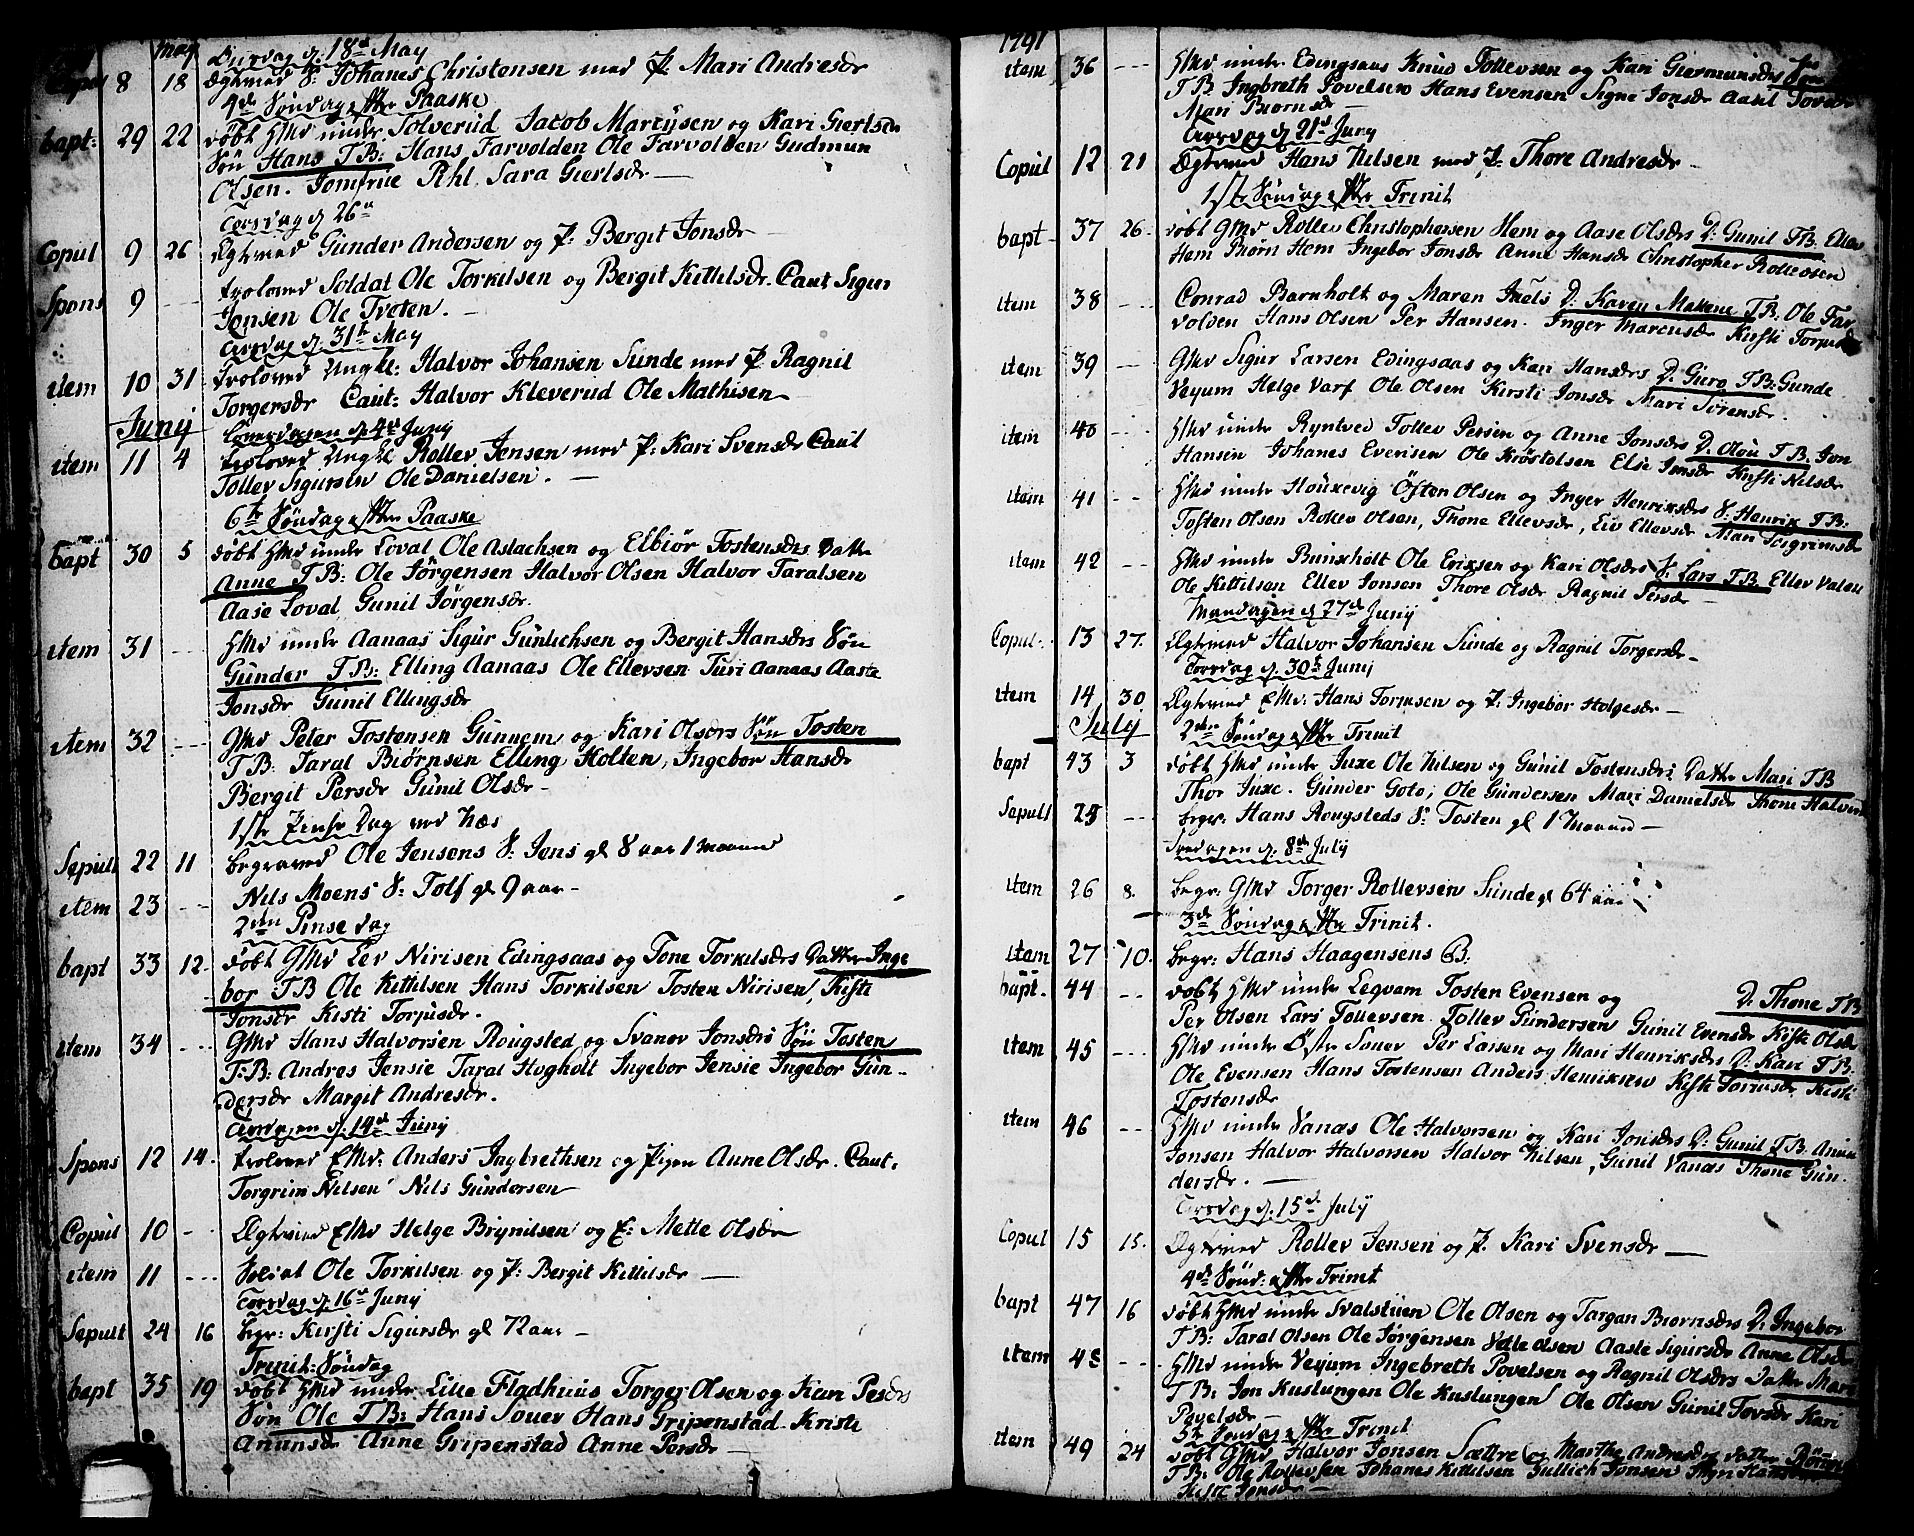 May
Onsdag d. 18de May
Copul 8 18 Ægtevied S: Johanes Christensen med P. Mari Andresdr
4de Søndag efter Paaske
bapt: 29 22 døbt HMd under Tolverud Jacob Marcusen og Kari Giertsdr
Søn Hans T.B: Hans Farvolden Ole Farvolden Gudmun
Olsen. Jomfrue Rhl. Sara Giertsdr —
Torsdag d 26de
Copul 9 26 Ægtevied Gunder Andersen og P: Bergit Jonsdr
Spons 9 --- troloved Soldat Ole Torkilsen og Bergit Kittilsdr. Caut Sigur
Jonsen Ole Tveten. —
Tirsdag d. 31te May
item 10 31 troloved Ungkl: Halvor Johansen Sunde med P. Ragnil
Torgersdr Caut: Halvor Kleverud Ole Mathisen —
Junij Løverdagen d 4de Junij
item 11 4 troloved Ungkl Rollev Jensen med P: Kari Svensdr Caut
Tollev Sigursen Ole Danielsen. —
6te Søndag efter Paaske
bapt 30 5 døbt HMd under Loval Ole Aslachsen og Elbiør Tostensdrs Datter
Anne T B: Ole Jørgensen Halvor Olsen Halvor Taralsen
Aase Loval Gunil Jørgensdr.
item 31 -- HMd under Aanaas Sigur Gunlichsen og Bergit Hansdrs Søn
Gunder T B: Elling Aanaas Ole Ellevsen Turi Aanaas Aaste
Jonsdr Gunil Ellingsdr
item 32 --- GMd Peter Tostensen Gunnem og Kari Olsdrs Søn Tosten
T B: Taral Biørnsen Elling Holten, Ingebor Hansdr
Bergit Persdr Gunil Olsdr —
1ste Pinse Dag ved Næs
Sepult 22 11 begraved Ole Jensens S: Jens gl 8 aar 1 Maaned
item 23 -- Nils Moens S: Tolf gl 9 aar —
2den Pinse dag
bapt 33 12 døbt GMd Lev Nirisen Edingsaas og Tone Torkilsdrs Datter Inge
bor T B Ole Kittilsen Hans Torkilsen Tosten Nirisen, Kisti
Jonsdr Kisti Torjusdr.
item 34 --- GMd Hans Halvorsen Rougsted og Svanov Jonsdrs Søn Tosten
T:B: Andres Jensie Taral Hogholt Ingebor Jensie Ingebor Gun-
dersdr Margit Andresdr.
Tirsdagen d. 14de Junij
Spons 12 14. troloved EMd: Anders Ingbrethsen og Pigen Anne Olsdr. Caut:
Torgrim Nilsen Nils Gundersen —
Copul 10 - Ægtevied EMd Helge Brynilsen og E: Mette Olsdr
item 11 --- Soldat Ole Torkilsen og P: Bergit Kittilsdr —
Torsdag d 16de Junij
Sepult 24 16 begr: Kirsti Sigursdr gl 72 aar —
Trinit: Søndag
bapt 35 19 døbt HMd under Lille Fladhuus Torger Olsen og Kari Pesdrs
Søn Ole T B: Hans Souer Hans Gripenstad Kristi
Anunsdr Anne Gripenstad Anne Persdr —
1791
item 36 --- HMd under Edingsaas Knud Tollevsen og Kari Giermunsdrs Søn
T B Ingbreth Povelsen Hans Evensen Signe Jonsdr Aasil Tovsdr
Mari Biørnsdr —
Tirsdag d 21de Junij
Copul 12 21 Ægtevied Hans Nilsen med P. Thore Andresdr —
1ste Søndag efter Trinit
bapt 37 26. døbt GMd Rollev Christophersen Hem og Aase Olsdrs D: Gunil T B. Ellev
Hem Biørn Hem Ingebor Jonsdr Anne Hansdr Christopher Rollevsen
item 38 --- Conrad Barnholt og Maren Juels D: Karen Malene T B. Ole Far
volden Hans Olsen Per Hansen. Inger Marcusdr Kirsti Torjusdr
item 39 --- GMd Sigur Larsen Edingsaas og Kari Hansdrs D. Guro T B: Gunde
Veyum Helge Varf Ole Olsen Kirsti Jonsdr Mari Sørensdr.
item 40 --- HMd under Ryntved Tollev Persen og Anne Jonsdrs D. Olou T B. Jon
Hansen Johanes Evensen Ole Kiøstolsen Else Jonsdr Kirsti Nilsdr
item 41 -- HMd under Houxevig Østen Olsen og Inger Henriksdrs S. Henrik T B:
Tosten Olsen Rollev Olsen, Thone Ellevsdr, Liv Ellevsdr Mari Torgrimsdr
item 42 -- HMd under Bunxholt Ole Erixsen og Kari Olsdrs S. Lars T B. Ellev Valen
Ole Kittilsen Ellev Jonsen Thore Olsdr Ragnil Persdr —
Mandagen d 27de Junij
Copul. 13 27. Ægtevied Halvor Johansen Sunde og Ragnil Torgersdr —
Torsdag d. 30te Junij
item 14 30 Ægtevied EMd: Hans Torjusen og P. Ingebor Holgesdr —
July 2den Søndag efter Trinit
bapt 43 3 døbt HMd under Juxe Ole Nilsen og Gunil Tostensdrs Datter Mari T B
Thor Juxe. Gunder Goto; Ole Gundersen Mari Danielsdr Thone Halvors
Sepult 25 --- begr: Hans Rougsteds S: Tosten gl 1 Maaned —
Fredagen d. 8de July
item 26 8. begr: GMd Torger Rollevsen Sunde gl 64 aar
3de Søndag efter Trinit.
item 27 10. begr: Hans Haagensens B:
bapt. 44 --- døbt HMd under Leqvam Tosten Evensen og D. Thone T B
Per Olsen Lars Tollevsen. Tollev Gundersen Gunil Evensdr Kisti Olsdr
item 45 --- HMd under Østre Souer Per Larsen og Mari Henriksdrs D: Kari T B:
Ole Evensen Hans Tostensen Anders Henriksen Kisti Torjusdr Kisti
Tostensdr
item 46 -- HMd under Vanaas Ole Halvorsen og Kari Jonsdrs D: Gunil T B. Anun
Jonsen Halvor Halvorsen Halvor Nilsen, Gunil Vanaas Thone Gun.
dersdr. —
Torsdag d. 15de July
Copul 15 15. Ægtevied Rollev Jensen og P. Kari Svensdr —
4de Sønd: efter Trinit
bapt 47 16 døbt HMd under Svalstuen Ole Olsen og Targan Biørnsdrs D: Ingebor
T B: Taral Olsen Ole Jørgensen Vetle Olsen Aaste Sigursdr Anne Olsdr
item 48 --- HMd under Veyum Ingebreth Povelsen og Ragnil Olsdrs Datter Mari
T B: Jon Kuslungen Ole Kuslungen Ole Olsen Gunil Tovsdr Kari
Povelsdr —
5te Søndag efter Trinit
item 49 24 døbt GMd Halvor Jonsen Sættre og Marthe Andresdrs Datter
T B: Ole Rollevsen Johanes Kittilsen Gullich Jonsen
Kisti Jonsdr —